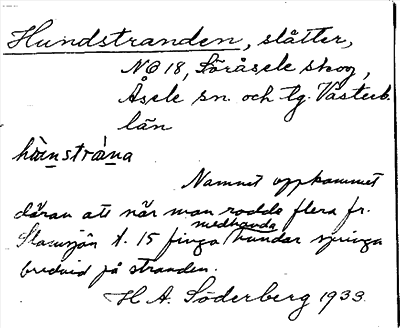 Hundstranden, slåtter,
NO 18, Söråsele skog,
Åsele sn. och tg. Västerb.
län
hùnstrà̀na
Namnet uppkommet
däran att när man rodde flera fr.
medhavda
t. 15 finga hundar springa
bredvid på stranden.
H. A. Söderberg 1933.